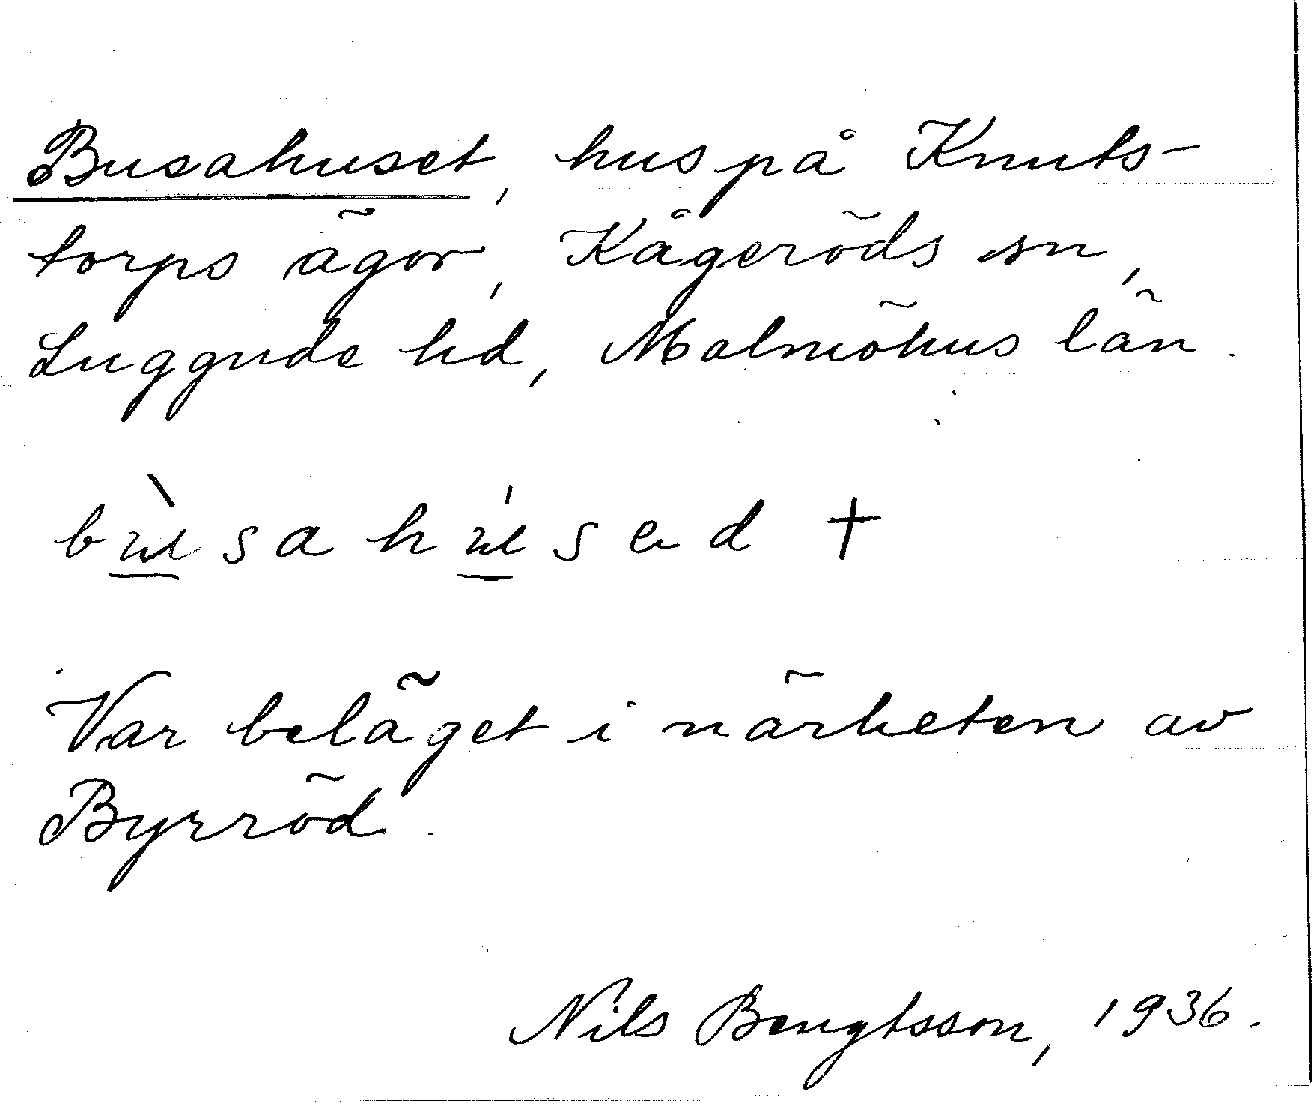 Busahuset, hus på Knuts-
torps ägor, Kågeröds sn,
Luggude hd, Malmöhus län.
bùsahúsed †
Var beläget i närheten av
Byrröd.
Nils Bengtsson, 1936.